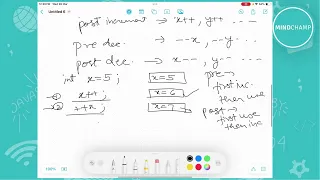 Untitled 6
post increment → x++, y++ ---
pre dec. → --x, --y ---
post dec. → x--, y-- ---
int x=5; x=5 pre →
① x++; x=6 first inc.
then use
② ++x; x=7 post →
first use
then inc
MINDCHAMP
JAVA